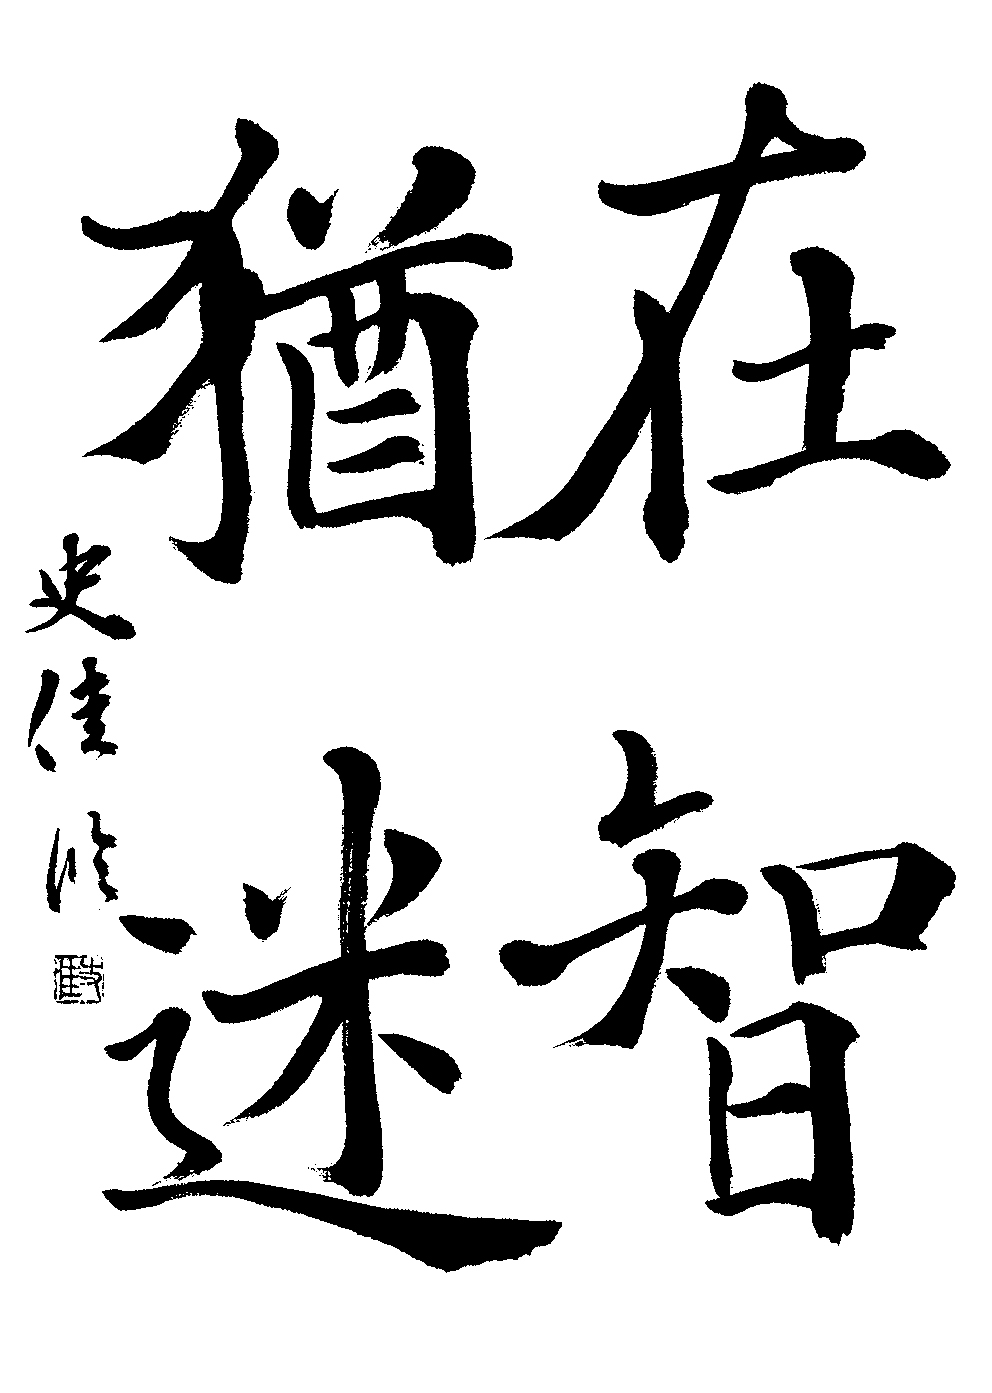 在智
猶迷
史佳臨